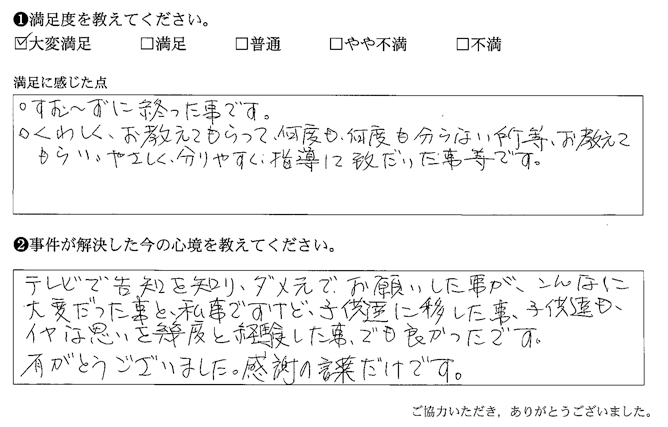 ❶満足度を教えてください。
☑大変満足 □満足 □普通 □やや不満 □不満
満足に感じた点
○すむ～ずに終った事です。
○くわしく、お教えてもらって、何度も、何度も分らない所等、お教えて
もらい、やさしく、分りやすく、指導に致だいた事等です。
❷事件が解決した今の心境を教えてください。
テレビで告知を知り、ダメ元で、お願いした事が、こんなに
大変だった事と、私事ですけど、子供達に移した事、子供達も、
イヤな思いを幾度と経験した事、でも良かったです。
有がとうございました。感謝の言葉だけです。
ご協力いただき，ありがとうございました。